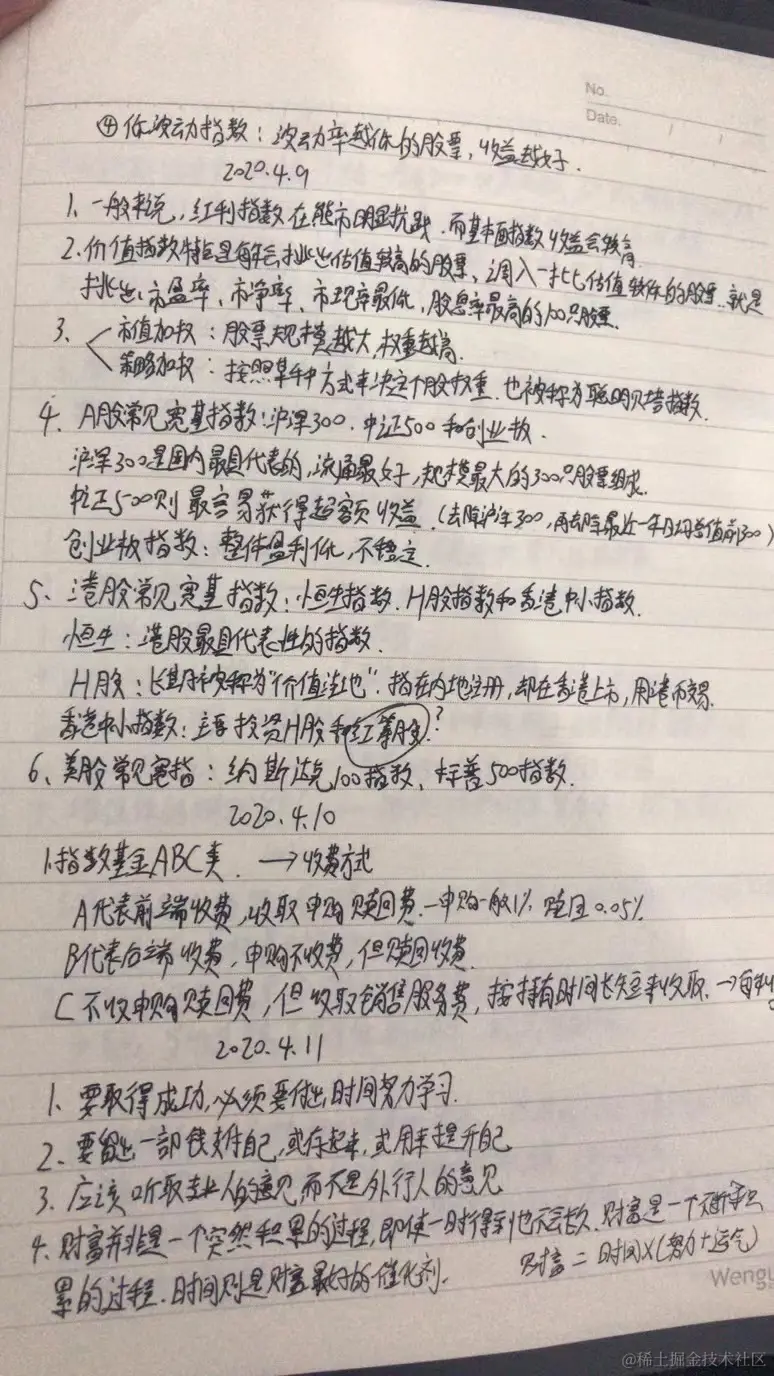 No.
Date.
④低波动指数：波动率越低的股票，收益越好.
2020.4.9
1、一般来说，红利指数在熊市明显抗跌.而基本面指数收益会较高
2.价值指数特征是每年会挑出估值较高的股票，调入一批估值较低的股票.就是
挑出市盈率、市净率、市现率最低，股息率最高的100只股票.
3、市值加权：股票规模越大，权重越高.
策略加权：按照某种方式来决定个股权重.也被称为聪明贝塔指数.
4、A股常见宽基指数：沪深300.中证500和创业板.
沪深300是国内最具代表的，流通最好，规模最大的300只股票组成.
中证500则最容易获得超额收益.(去除沪深300，再去除最近一年日均总值前300)
创业板指数：整体盈利低，不稳定.
5、港股常见宽基指数：恒生指数.H股指数和香港中小指数.
恒生：港股最具代表性的指数.
H股：长期被称为“价值洼地”.指在内地注册，却在香港上市，用港币交易.
香港中小指数：主要投资H股和红筹股.?
6、美股常见宽指：纳斯达克100指数、标普500指数.
2020.4.10
1.指数基金ABC类.→收费方式
A代表前端收费，收取申购赎回费.一申购一般1%.赎回0.05%
B代表后端收费，申购不收费，但赎回收费
C不收申购赎回费，但收取销售服务费，按持有时间长短来收取.→
2020.4.11
1、要取得成功，必须要付出时间努力学习.
2、要留出一部钱支付自己，或存起来，或用来提升自己
3、应该听取专业人的意见，而不是外行人的意见
4.财富并非是一个突然积累的过程，即使一时得到也不会长久.财富是一个不断积
累的过程.时间则是财富最好的催化剂.
财富=时间×(努力+运气)
Wengu
@稀土掘金技术社区